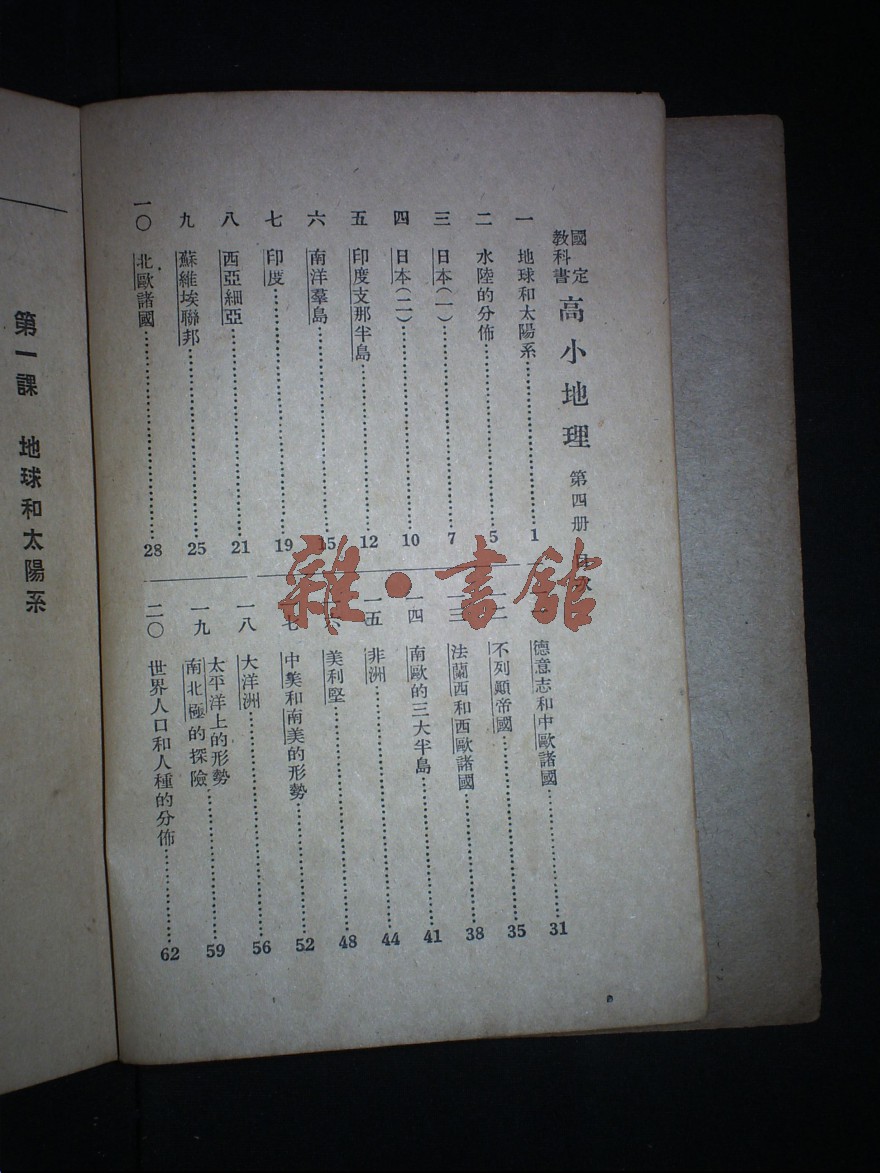 國定教科書 高小地理 第四册 目次
一 地球和太陽系 1
二 水陸的分佈 5
三 日本(一) 7
四 日本(二) 10
五 印度支那半島 12
六 南洋羣島 15
七 印度 19
八 西亞細亞 21
九 蘇維埃聯邦 25
一〇 北歐諸國 28
德意志和中歐諸國 31
一二 不列顛帝國 35
一三 法蘭西和西歐諸國 38
一四 南歐的三大半島 41
一五 非洲 44
一六 美利堅 48
一七 中美和南美的形勢 52
一八 大洋洲 56
一九 太平洋上的形勢 南北極的探險 59
二〇 世界人口和人種的分佈 62
第一課 地球和太陽系
雜·書館